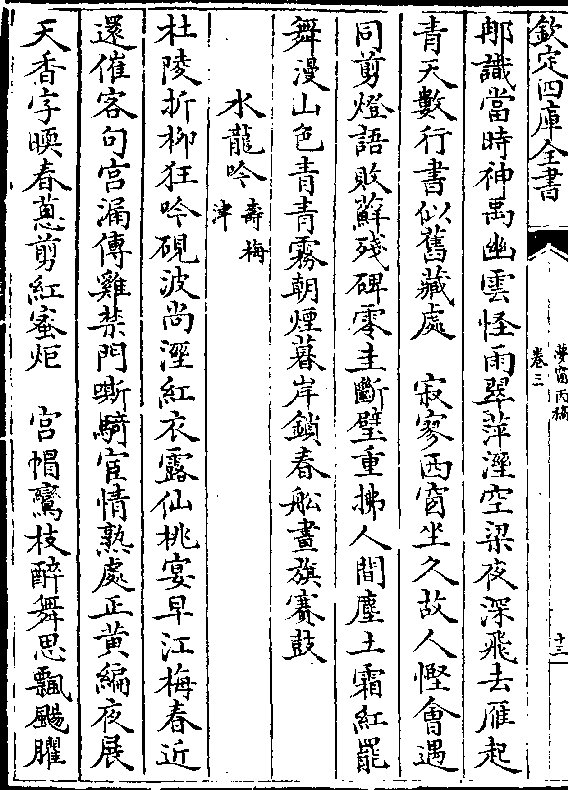 欽定四庫全書
夢窗丙稿
卷三
十三
那識當時神禹幽雲怪雨翠萍溼空梁夜深飛去雁起
青天數行書似舊藏處　寂寥西窗坐久故人慳會遇
同剪燈語敗蘚殘碑零圭斷璧重拂人間塵土霜紅罷
舞漫山色青青霧朝煙暮岸鎖春船畫旗賽鼓
水龍吟壽梅津
杜陵折柳狂吟硯波尚溼紅衣露仙桃宴早江梅春近
還催客句宮漏傳雞禁門嘶騎宦情熟處正黃編夜展
天香字暖春蔥剪紅蜜炬　宮帽鸞枝醉舞思飄颺臞